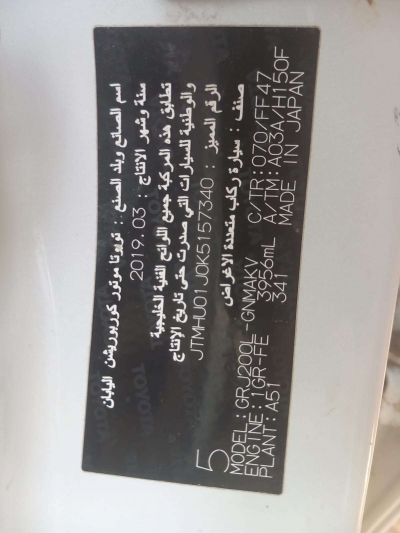 اسم الصانع وبلد الصنع : تويوتا موتور كوربوريشن اليابان
سنة وشهر الانتاج : 2019.03
تطابق هذه المركبة جميع اللوائح الفنية الخليجية
والوطنية للسيارات التي صدرت حتى تاريخ الإنتاج
الرقم المميز : JTMHU01J0K5157340
صنف : سيارة ركاب متعددة الاغراض
5
MODEL: GRJ200L-GNMAKV C/TR: 070/FF47
ENGINE: 1GR-FE 3956mL A/TM: A03A/H150F
PLANT: A51 341 MADE IN JAPAN
TOYOTA TOYOTA TOYOTA